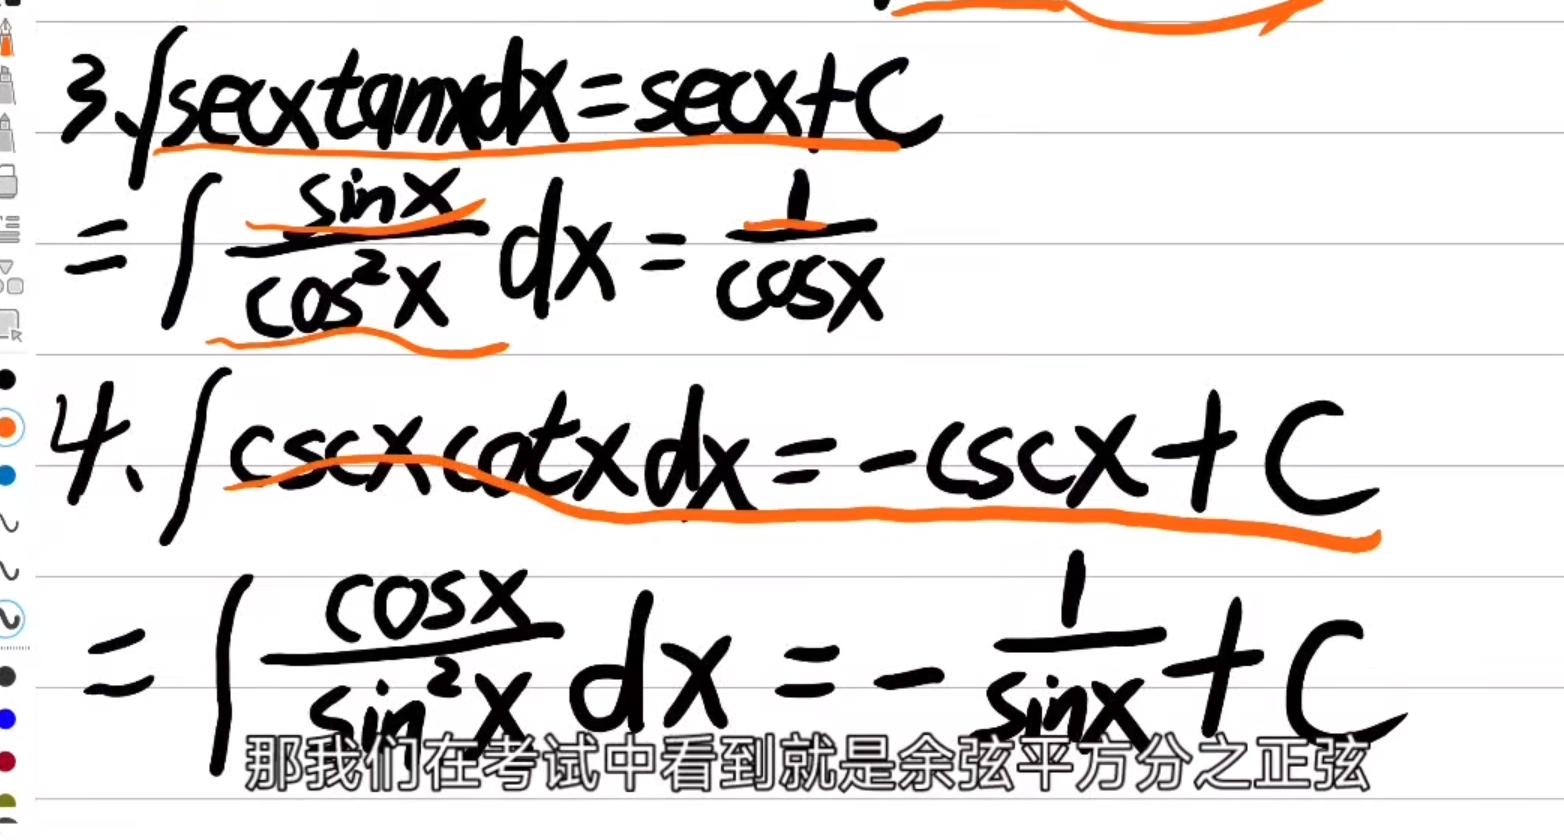 3. ∫secxtanxdx=secx+C
= ∫ sinx/cos²x dx = 1/cosx
4. ∫cscxcotxdx=-cscx+C
= ∫ cosx/sin²x dx = - 1/sinx + C
那我们在考试中看到就是余弦平方分之正弦